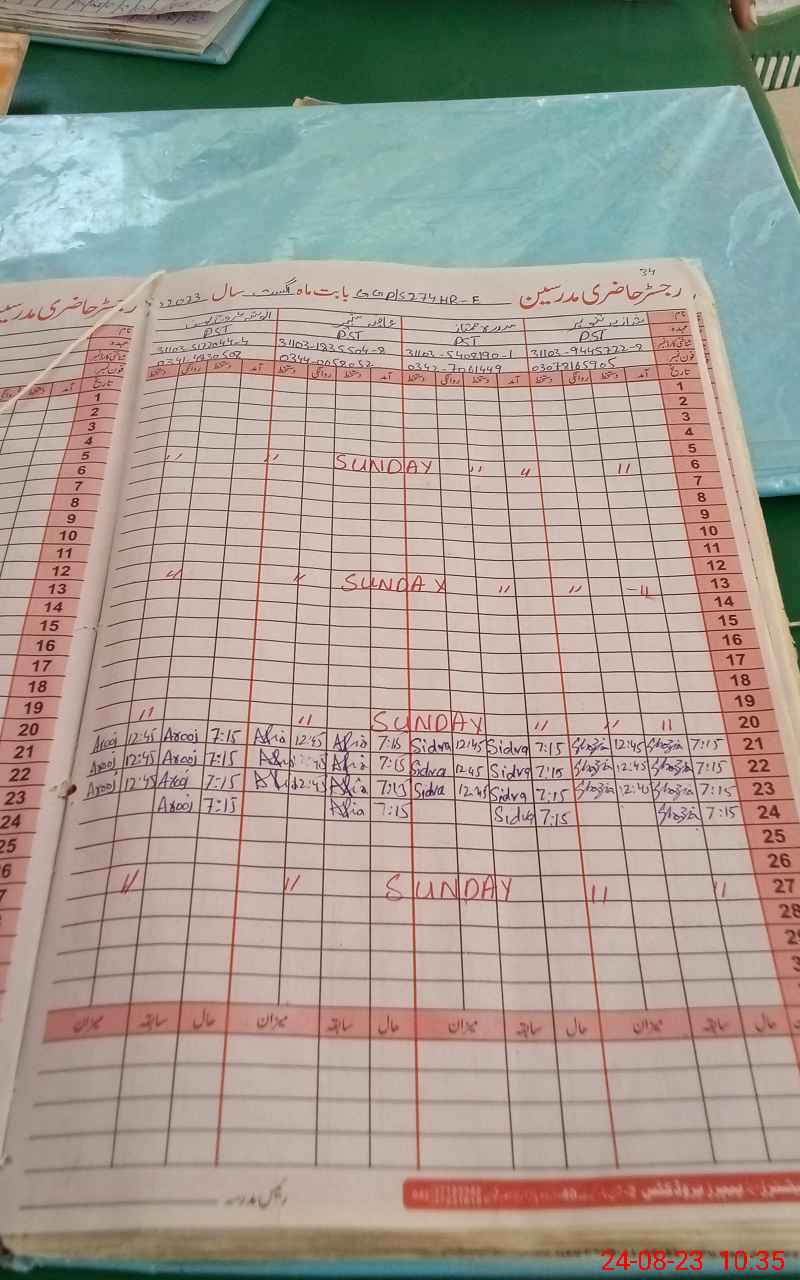 34
رجسٹر حاضری مدرسین GGP/S274HR-F بابت ماہ اگست سال 2023
نام
عہدہ PST PST PST PST
شناختی کارڈ نمبر 31103-9445722-8 31103-5408190-1 31103-1835504-8 31103-5122044-4
فون نمبر 03078165905 0342-7061449 0344-0058052 0341-4830508
تاریخ آمد دستخط روانگی دستخط آمد دستخط روانگی دستخط آمد دستخط روانگی دستخط آمد دستخط روانگی دستخط
1
2
3
4
5
" " SUNDAY " " " 6
7
8
9
10
11
12
" " SUNDAY " " " 13
14
15
16
17
18
19
" " SUNDAY " " " 20
Arooj 12:45 Arooj 7:15 Afia 12:45 Afia 7:15 Sidra 12:45 Sidra 7:15 Shazia 12:45 Shazia 7:15 21
Arooj 12:45 Arooj 7:15 Afia Afia 7:15 Sidra 12:45 Sidra 7:15 Shazia 12:45 Shazia 7:15 22
Arooj 12:45 Arooj 7:15 Afia 12:45 Afia 7:15 Sidra 12:45 Sidra 7:15 Shazia 12:45 Shazia 7:15 23
Arooj 7:15 Afia 7:15 Sidra 7:15 Shazia 7:15 24
25
26
" " SUNDAY " " 27
28
حال سابقہ میزان حال سابقہ میزان حال سابقہ میزان حال سابقہ میزان
رئیس مدرسہ
پیپرز پروڈکٹس
24-08-23 10:35